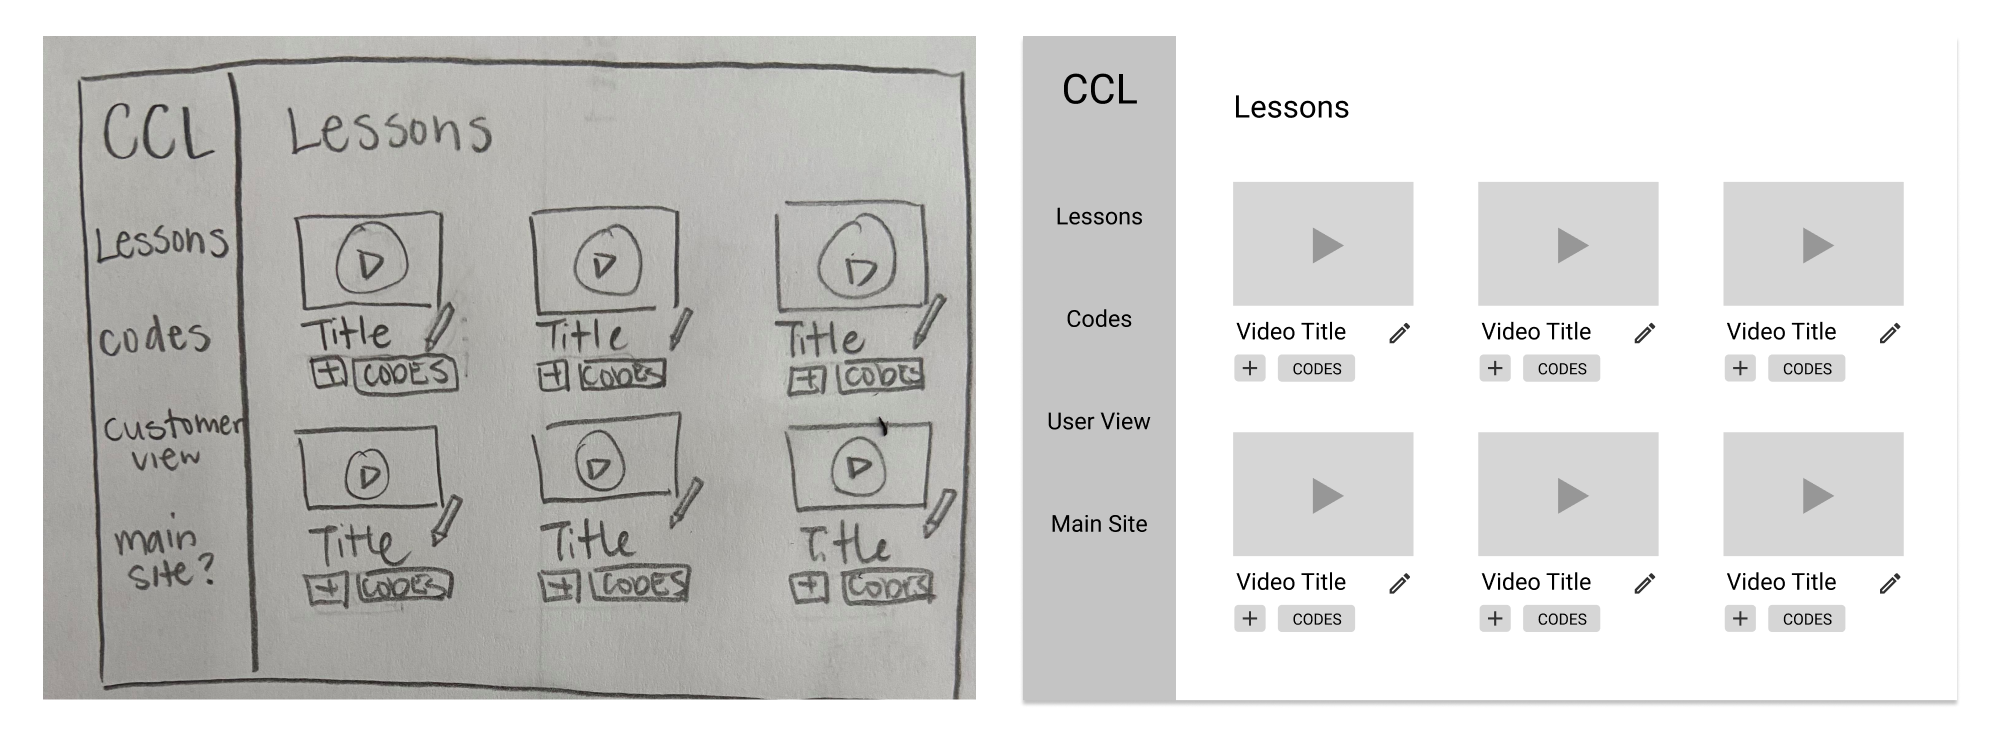 CCL
Lessons
codes
customer
view
main
site?
Lessons
Title
+ CODES
Title
+ CODES
Title
+ CODES
Title
+ CODES
Title
+ CODES
Title
+ CODES
CCL
Lessons
Codes
User View
Main Site
Lessons
Video Title
+ CODES
Video Title
+ CODES
Video Title
+ CODES
Video Title
+ CODES
Video Title
+ CODES
Video Title
+ CODES